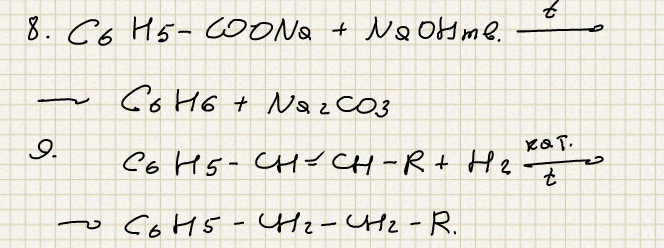 8. C6H5-COONa + NaOHтв. t→
→ C6H6 + Na2CO3
9. C6H5-CH=CH-R + H2 кат. t→
→ C6H5-CH2-CH2-R.